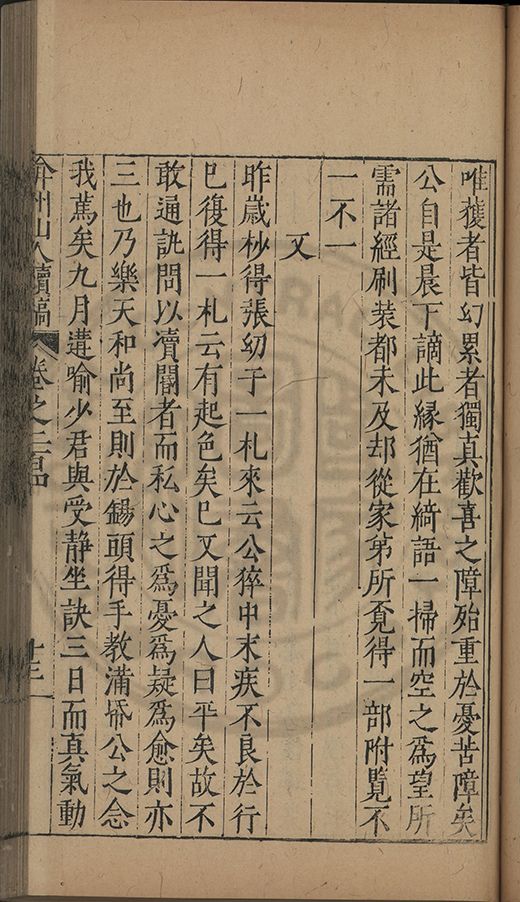 唯獲者皆幻累者獨真歡喜之障殆重於憂苦障矣
公自是晨下謫此縁猶在綺語一掃而空之爲望所
需諸經刷装都未及却從家第所覔得一部附覽不
一不一
又
昨歳杪得張幼于一札來云公猝中末疾不良於行
巳復得一札云有起色矣巳又聞之人曰平矣故不
敢通訊問以凟閽者而私心之爲憂爲疑爲愈則亦
三也乃樂天和尚至則於錫頭得手教滿帋公之念
我篤矣九月遘喻少君與受静坐訣三日而真氣動
弇州山人續稿 卷之二百四 十三